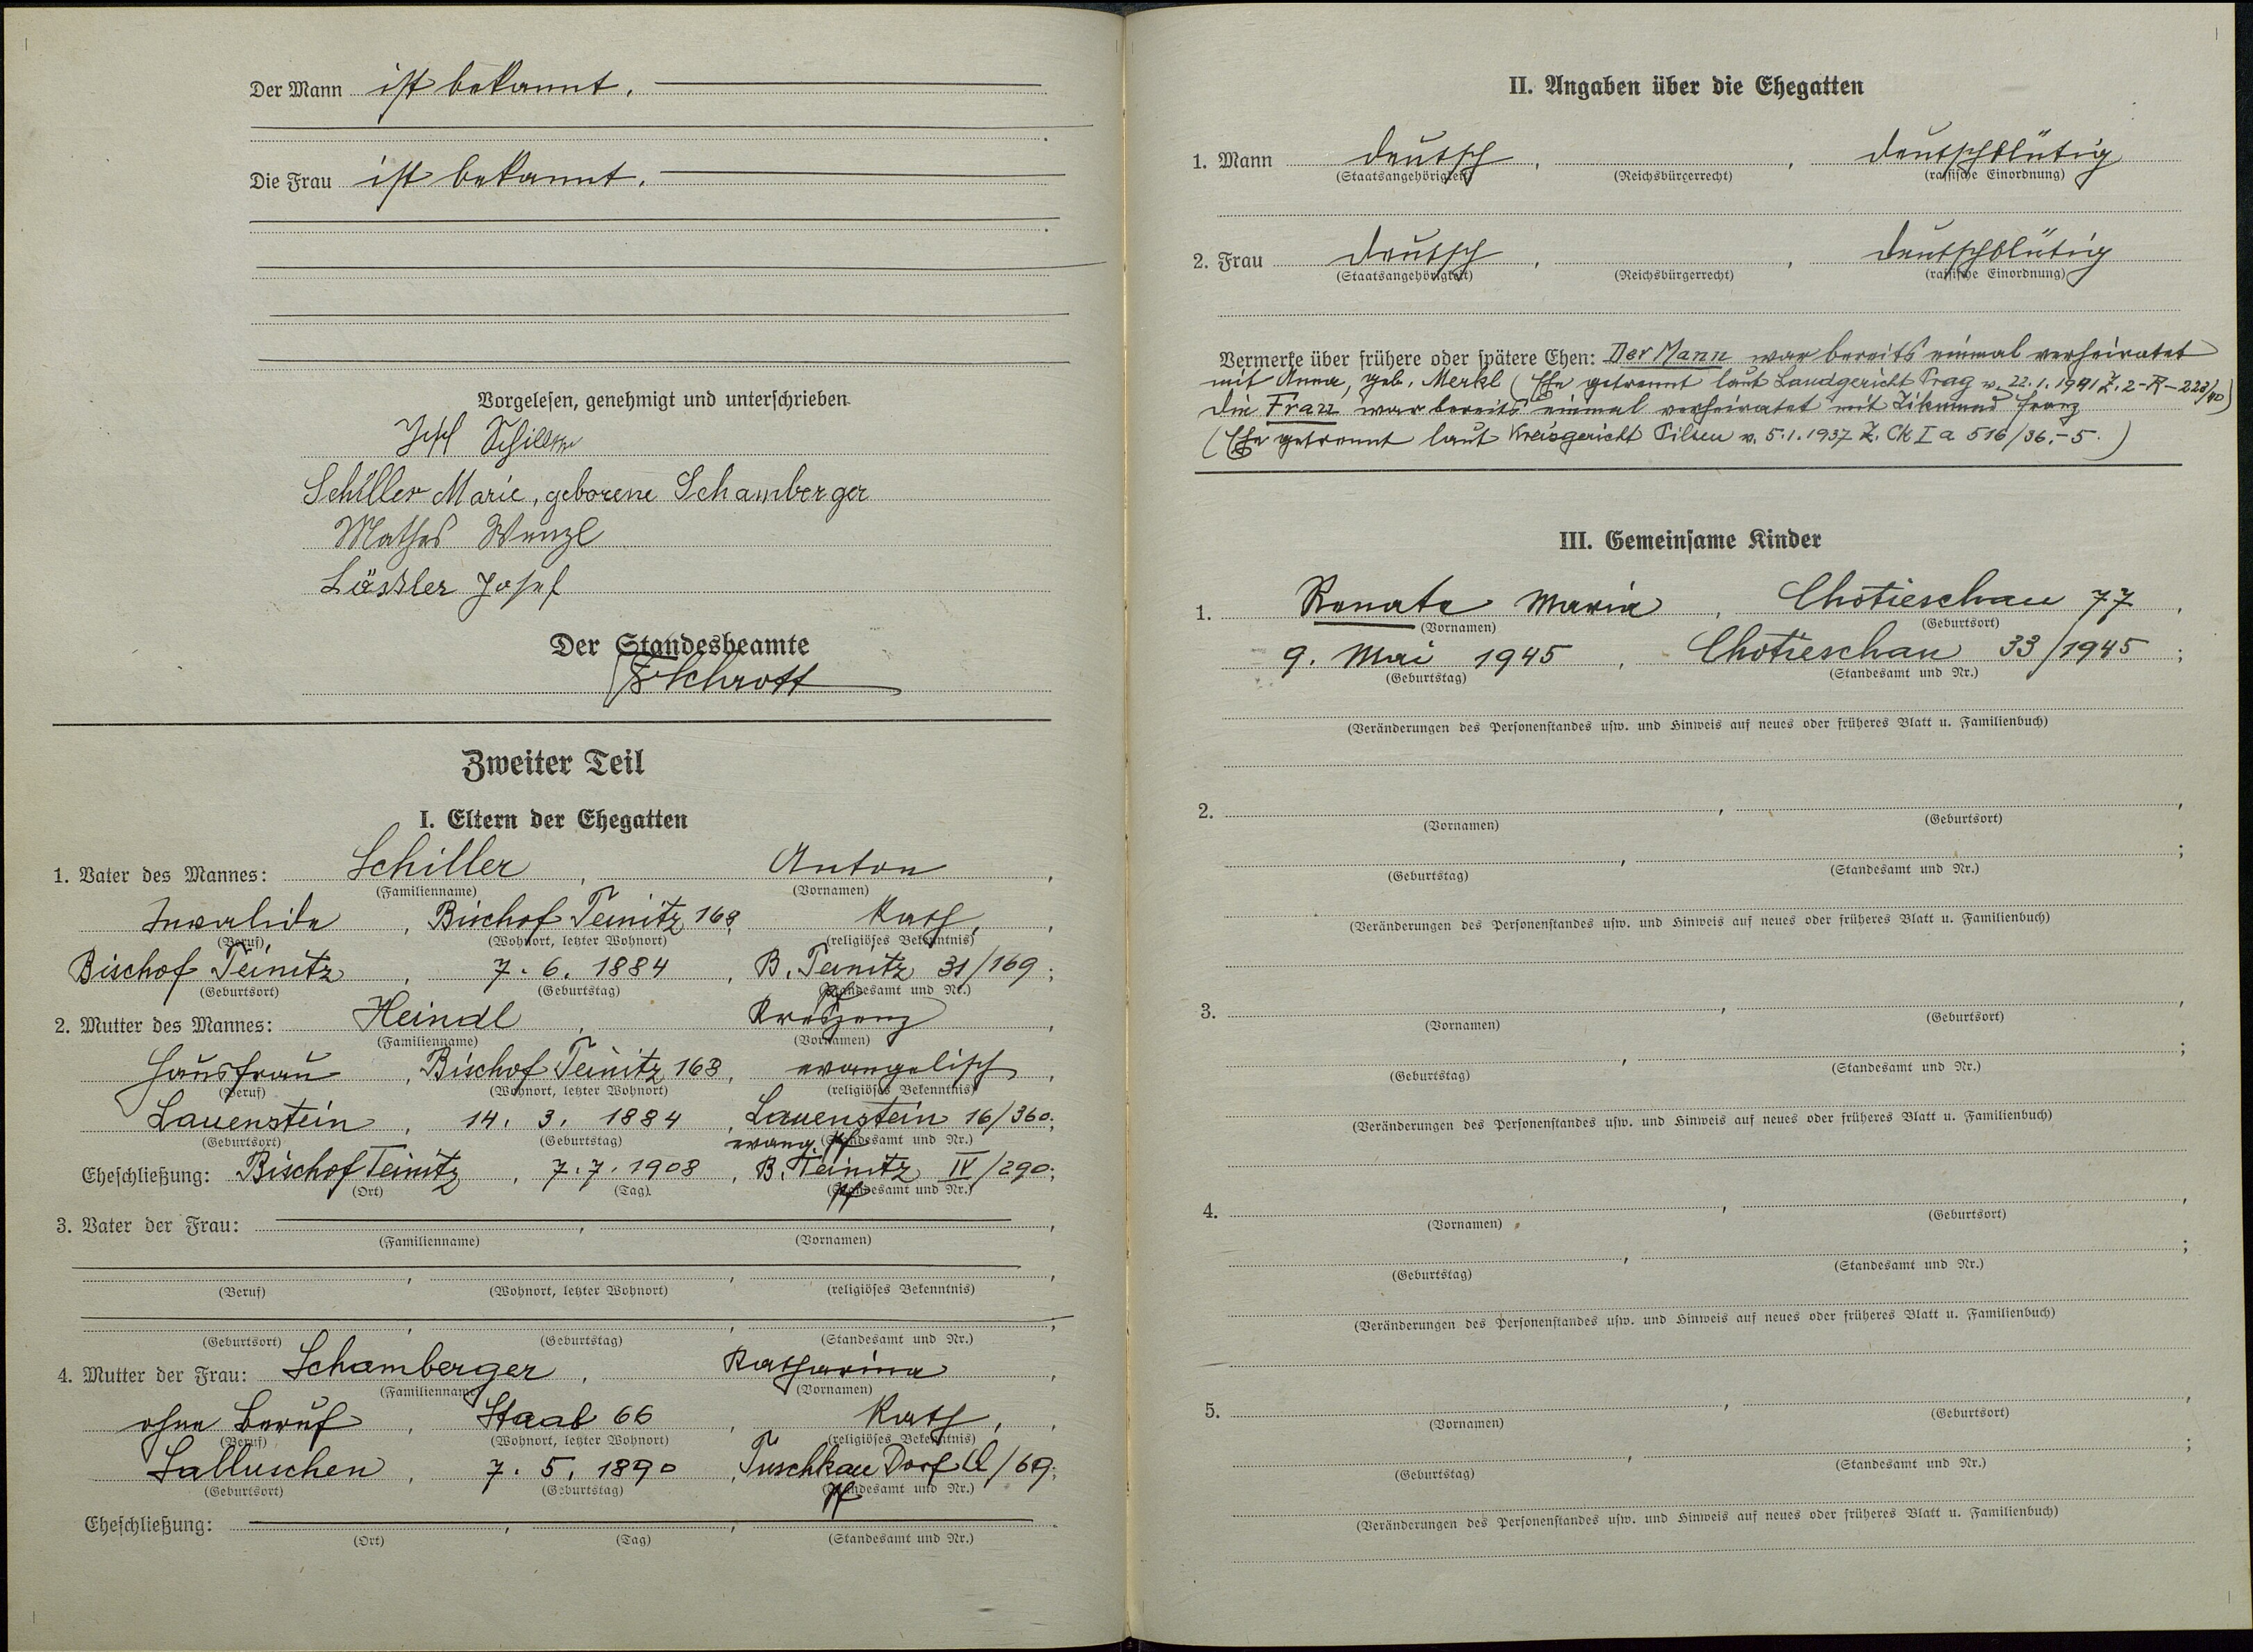 Der Mann ist bekannt.
Die Frau ist bekannt.
Vorgelesen, genehmigt und unterschrieben
Josef Schiller
Schiller Marie, geborene Schamberger
Mathes Wenzl
Lässler Josef
Der Standesbeamte
Schrott
Zweiter Teil
I. Eltern der Ehegatten
1. Vater des Mannes: Schiller, Anton,
(Familienname) (Vornamen)
Invalide, Bischof Teinitz 168, kath.,
(Beruf) (Wohnort, letzter Wohnort) (religiöses Bekenntnis)
Bischof Teinitz, 7. 6. 1884, B. Teinitz 31/169;
(Geburtsort) (Geburtstag) (Standesamt und Nr.)
2. Mutter des Mannes: Heindl, Kreszenz,
(Familienname) (Vornamen)
Hausfrau, Bischof Teinitz 168, evangelisch,
(Beruf) (Wohnort, letzter Wohnort) (religiöses Bekenntnis)
Lauenstein, 14. 3. 1884, Lauenstein 16/360;
(Geburtsort) (Geburtstag) evang. Pf (Standesamt und Nr.)
Eheschließung: Bischof Teinitz, 7. 7. 1908, B. Teinitz IV/290;
(Ort) (Tag) (Standesamt und Nr.)
3. Vater der Frau:
(Familienname) (Vornamen)
(Beruf) (Wohnort, letzter Wohnort) (religiöses Bekenntnis)
(Geburtsort) (Geburtstag) (Standesamt und Nr.)
4. Mutter der Frau: Schamberger, Katharina,
(Familienname) (Vornamen)
ohne Beruf, Staab 66, kath.,
(Beruf) (Wohnort, letzter Wohnort) (religiöses Bekenntnis)
Salluschen, 7. 5. 1890, Tuschkau Dorf /69;
(Geburtsort) (Geburtstag) (Standesamt und Nr.)
Eheschließung:
(Ort) (Tag) (Standesamt und Nr.)
II. Angaben über die Ehegatten
1. Mann deutsch, , deutschblütig
(Staatsangehörigkeit) (Reichsbürgerrecht) (rassische Einordnung)
2. Frau deutsch, , deutschblütig
(Staatsangehörigkeit) (Reichsbürgerrecht) (rassische Einordnung)
Vermerke über frühere oder spätere Ehen: Der Mann war bereits einmal verheiratet
mit Anna, geb. Merkl (Ehe getrennt laut Landgericht Prag v. 22. 1. 1941 Z. 2-R-228/40)
Die Frau war bereits einmal verheiratet mit Zikmund Franz
(Ehe getrennt laut Kreisgericht Pilsen v. 5. 1. 1937 Z. Ck I a 516/36.-5.)
III. Gemeinsame Kinder
1. Renate Maria, Chotieschau 77,
(Vornamen) (Geburtsort)
9. Mai 1945, Chotieschau 33/1945;
(Geburtstag) (Standesamt und Nr.)
(Veränderungen des Personenstandes usw. und Hinweis auf neues oder früheres Blatt u. Familienbuch)
2.
(Vornamen) (Geburtsort)
(Geburtstag) (Standesamt und Nr.)
(Veränderungen des Personenstandes usw. und Hinweis auf neues oder früheres Blatt u. Familienbuch)
3.
(Vornamen) (Geburtsort)
(Geburtstag) (Standesamt und Nr.)
(Veränderungen des Personenstandes usw. und Hinweis auf neues oder früheres Blatt u. Familienbuch)
4.
(Vornamen) (Geburtsort)
(Geburtstag) (Standesamt und Nr.)
(Veränderungen des Personenstandes usw. und Hinweis auf neues oder früheres Blatt u. Familienbuch)
5.
(Vornamen) (Geburtsort)
(Geburtstag) (Standesamt und Nr.)
(Veränderungen des Personenstandes usw. und Hinweis auf neues oder früheres Blatt u. Familienbuch)